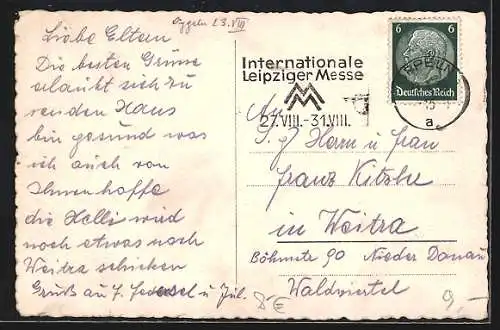 Oggeln 23.VIII
Liebe Eltern
Die besten Grüsse
erlaubt sich zu
senden Hans
bin gesund was
ich auch von
Ihnen hoffe
die Helli wird
noch etwas nach
Weitra schicken
Gruß an u Jul.
6 6
Deutsches Reich
Internationale
Leipziger Messe
MM
27.VIII.-31.VIII.
a
An
S. g Herrn u Frau
Franz
in Weitra
Böhmstr 90 Nieder Donau
Waldviertel
9,-